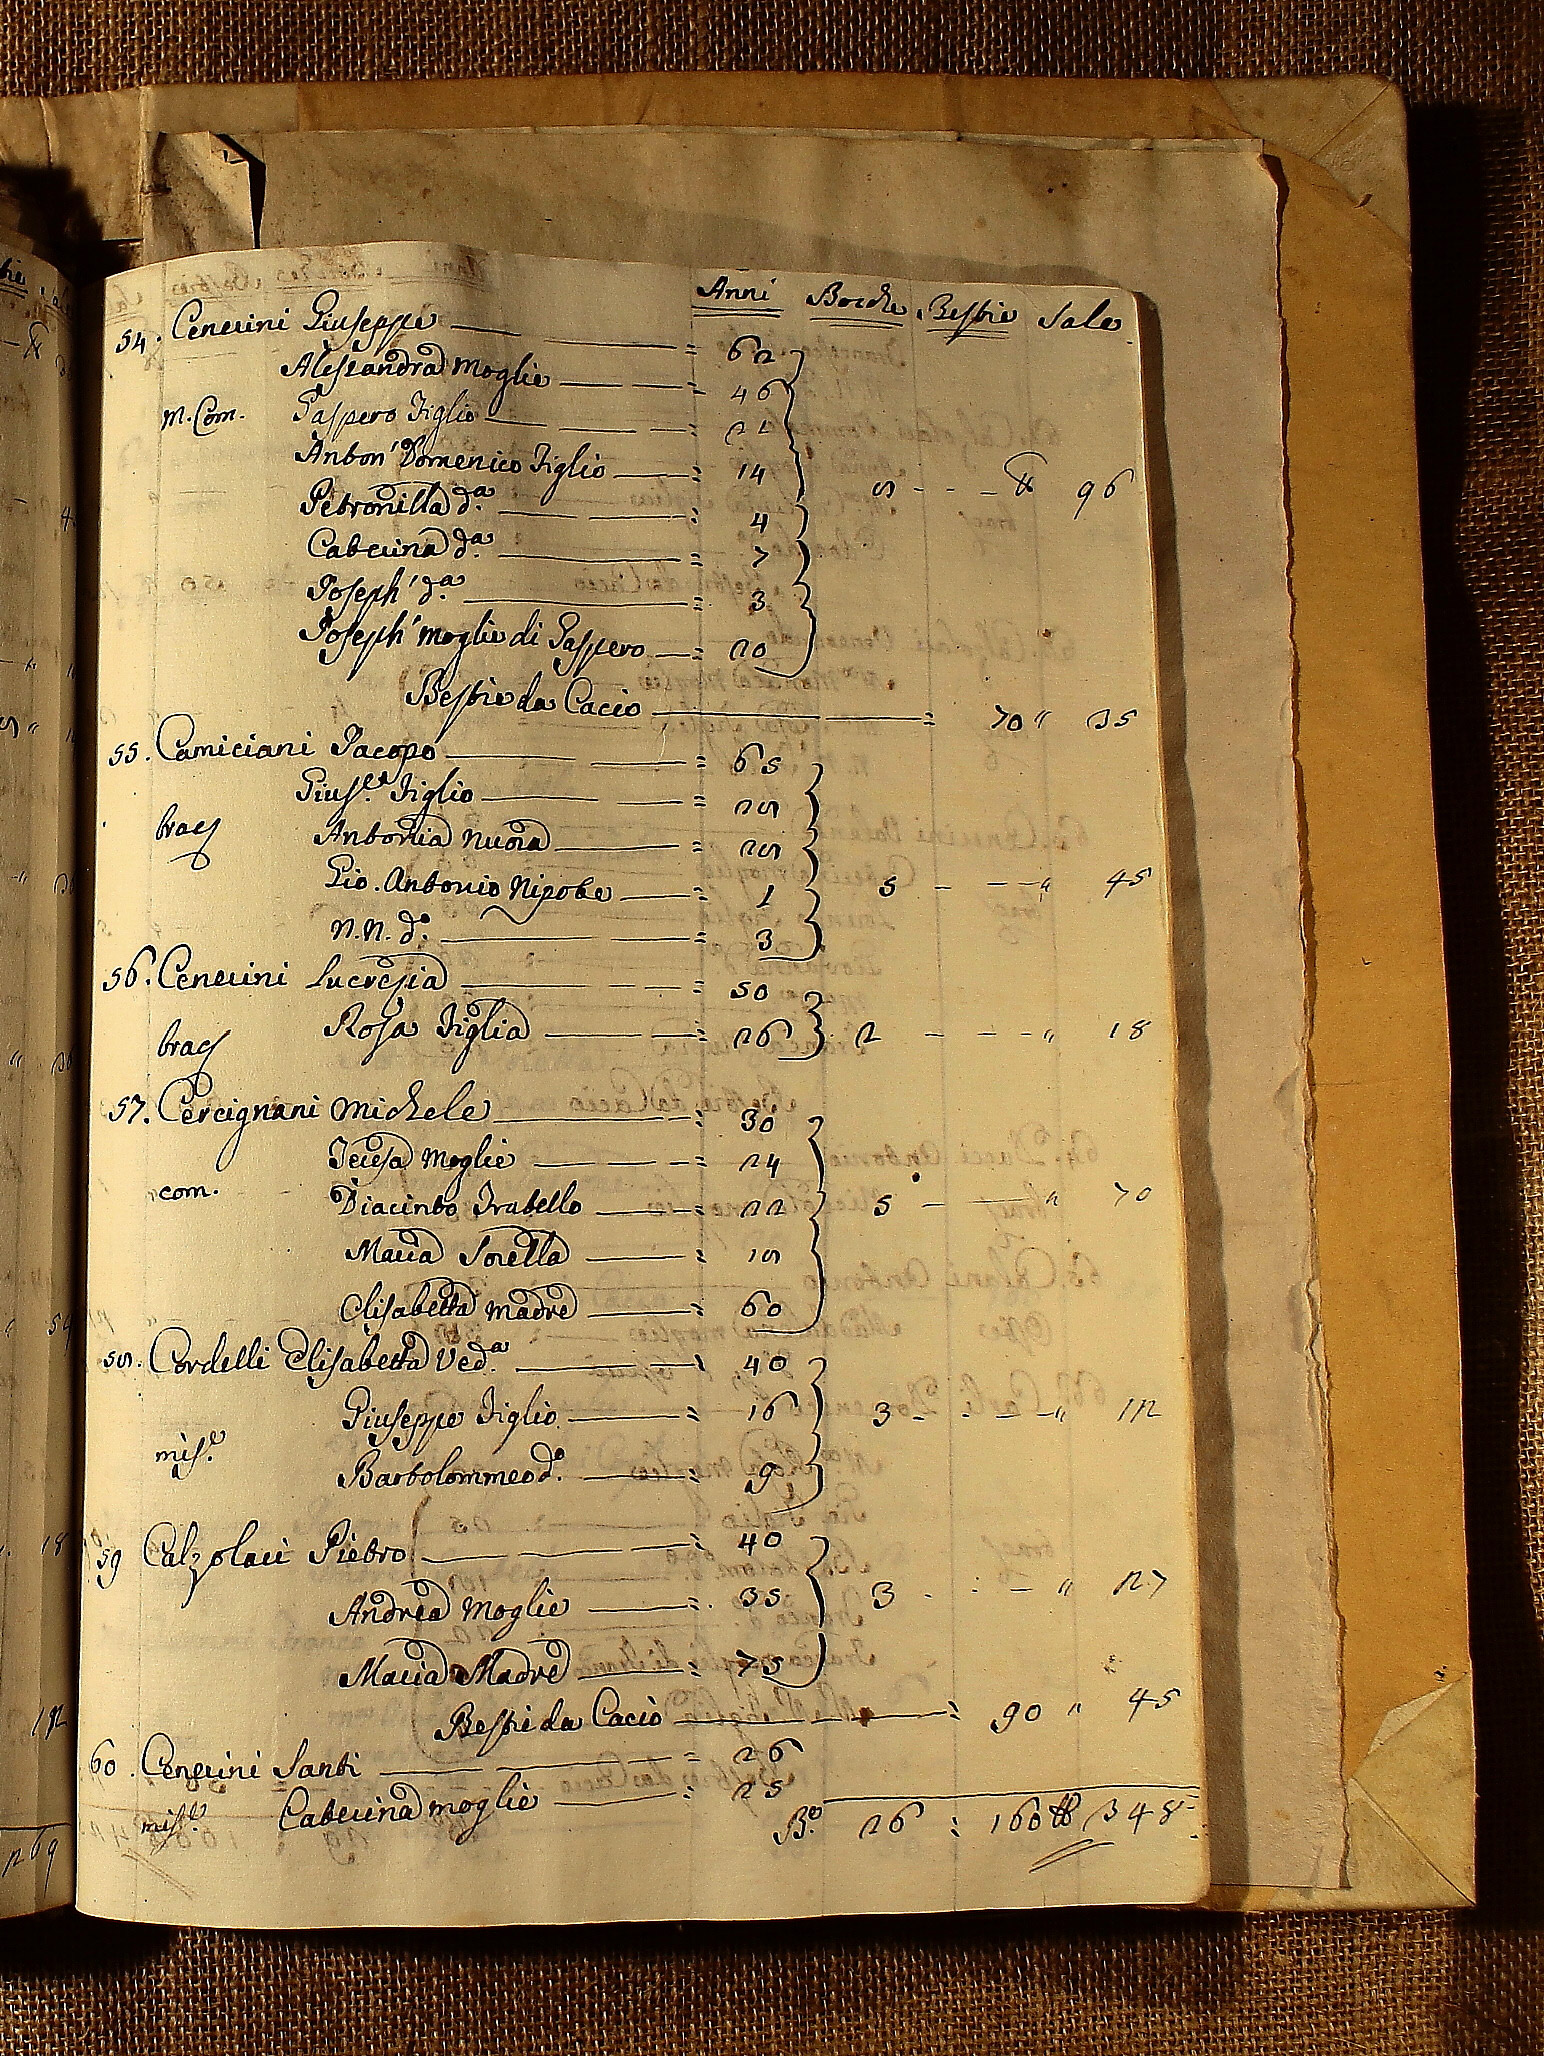 Anni Bocche Bestie Sale
54. Cenerini Giuseppe = 62
Alessandra Moglie = 46
m. Com. Gaspero Figlio = 21
Anton' Domenico Figlio = 14 8 - - - ℔ 96
Petronilla d.a = 4
Caterina d.a = 7
Joseph' d.a = 3
Joseph' moglie di Gaspero = 20
Bestie da Cacio = 70 " 35
55. Camiciani Jacopo = 65
Gius.e Figlio = 28
brac Antonia Nuora = 28
Gio. Antonio Nipote = 1 5 - - - " 45
N.N. d.o = 3
56. Cenerini Lucrezia = 50
brac Rosa Figlia = 26 2 - - - " 18
57. Cercignani Michele = 30
Teresa Moglie = 24
com. Diacinto Fratello = 22 5 - - " 70
Maria Sorella = 18
Elisabetta Madre = 60
58. Cordelli Elisabetta Ved.a = 40
Giuseppe Figlio = 16 3 - - - " 12
mis.e Bartolommeo d.o = 9
59 Calzolari Pietro = 40
Andrea Moglie = 35 3 - - - " 27
Maria Madre = 75
Bestie da Cacio = 90 " 45
60. Cenerini Santi = 26
mis.e Caterina moglie = 25
B.e 26 : 160 ℔ 348